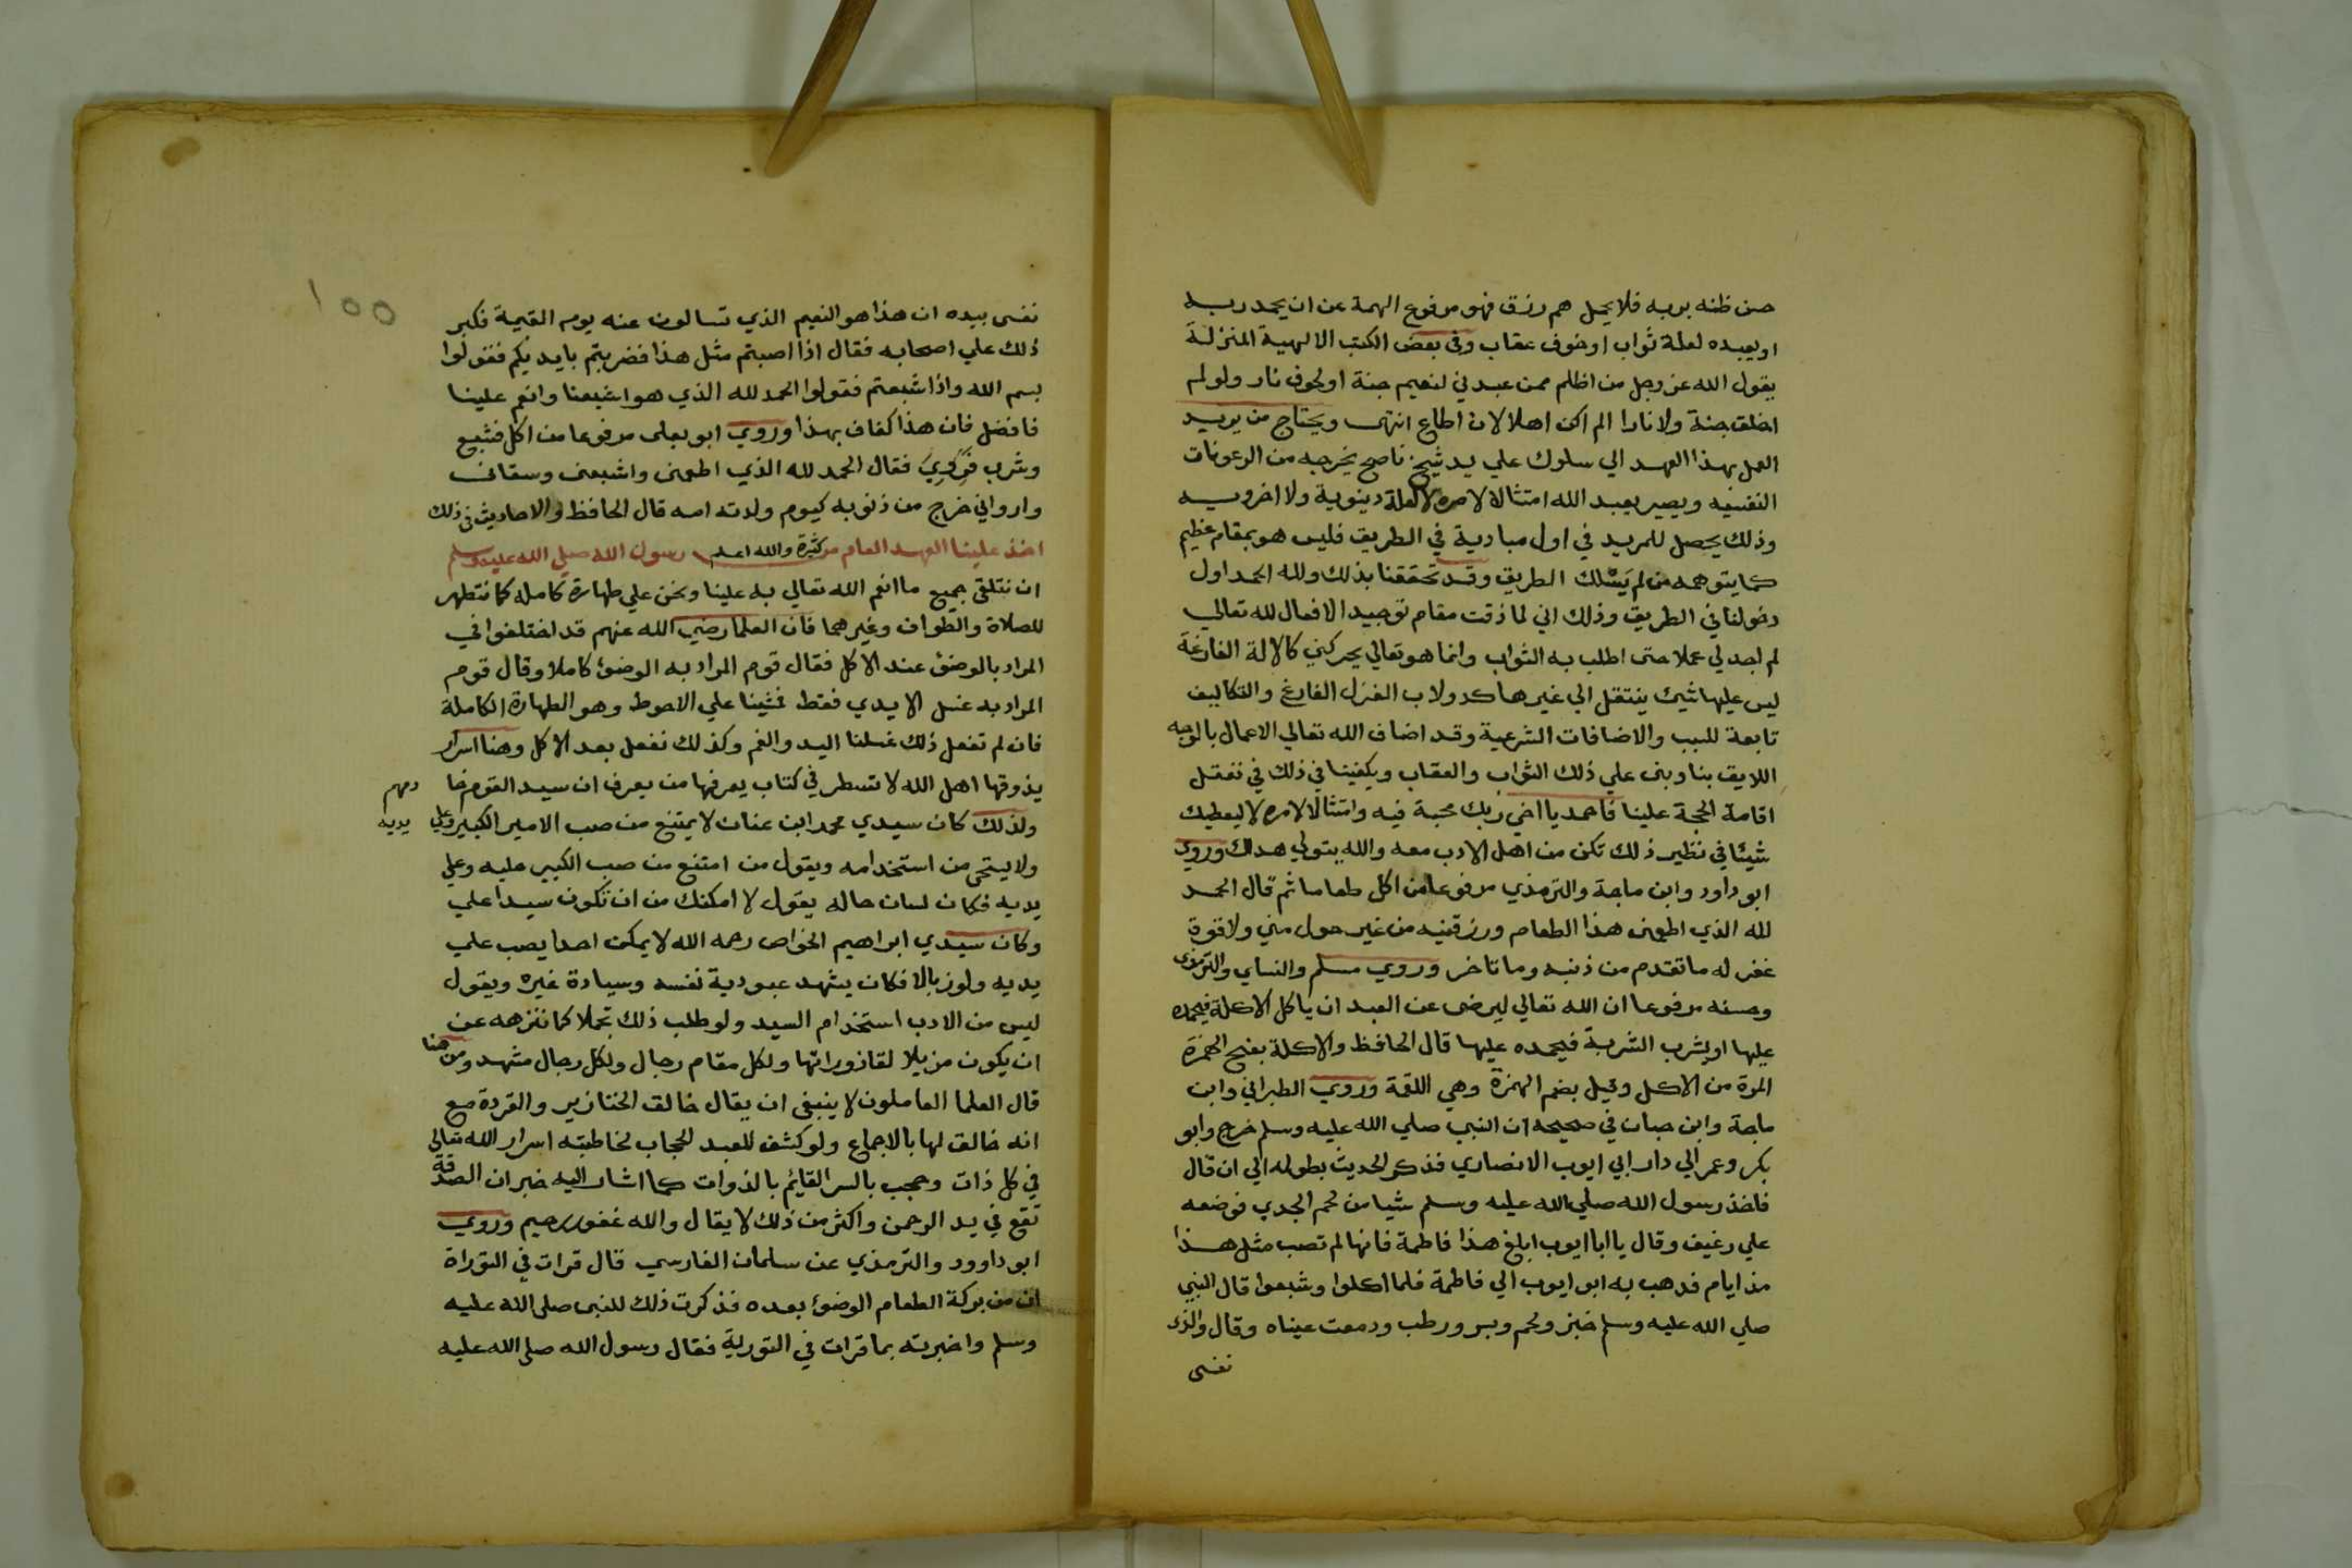 حسن ظنه بربه فلا يحمل هم رزق فهو مرفوع الهمة عن ان يحمد ربه
او يعبده لعلة ثواب او خوف عقاب وفي بعض الكتب الالهية المنزلة
يقول الله عز وجل من اظلم ممن عبدني لنعيم جنة او لخوف نار ولو لم
اخلق جنة ولا نارا الم اكن اهلا لان اطاع انتهى ويحتاج من يريد
العمل بهذا العهد الي سلوك علي يد شيخ ناصح يخرجه من الرعونات
النفسيه ويصير يعبد الله امتثالا لامره لا لعلة دينوية ولا اخرويه
وذلك يحصل للمريد في اول مبادية في الطريق فليس هو بمقام عظيم
كما يتوهمه من لم يسلك الطريق وقد تحققنا بذلك ولله الحمد اول
دخولنا في الطريق وذلك اني لما ذقت مقام توحيد الافعال لله تعالي
لم اجد لي عملا حتى اطلب به الثواب وانما هو تعالي يحركني كالالة الفارغة
ليس عليها شيئ ينتقل الي غيرها كدولاب الغزل الفارغ والتكاليف
تابعة للسبب والاضافات الشرعية وقد اضاف الله تعالي الاعمال بالوجه
اللايق بنا وبنى علي ذلك الثواب والعقاب ويكفينا في ذلك في تعقل
اقامة الحجة علينا فاحمد يا اخي ربك محبة فيه وامتثالا لامره لا ليعطيك
شيئا في نظير ذلك تكن من اهل الادب معه والله يتولي هداك وروي
ابو داود وابن ماجة والترمذي مرفوعا من اكل طعاما ثم قال الحمد
لله الذي اطعمنى هذا الطعام ورزقنيه من غير حول مني ولا قوة
غفر له ما تقدم من ذنبه وما تاخر وروي مسلم والنساي والترمذي
وحسنه مرفوعا ان الله تعالي ليرضى عن العبد ان ياكل الاكلة فيحمده
عليها او يشرب الشربة فيحمده عليها قال الحافظ والاكلة بفتح الهمزة
المرة من الاكل وقيل بضم الهمزة وهي اللقمة وروي الطبراني وابن
ماجة وابن حبان في صحيحه ان النبي صلي الله عليه وسلم خرج وابو
بكر وعمر الي دار ابي ايوب الانصاري فذكر الحديث بطوله الي ان قال
فاخذ رسول الله صلي الله عليه وسلم شيا من لحم الجدي فوضعه
علي رغيف وقال يا ابا ايوب ابلغ هذا فاطمة فانها لم تصب مثل هذا
منذ ايام فذهب به ابو ايوب الي فاطمة فلما اكلوا وشبعوا قال النبي
صلي الله عليه وسلم خبز ولحم وبسر ورطب ودمعت عيناه وقال والذى
نفسى
١٥٥
نفسى بيده ان هذا هو النعيم الذي تسالون عنه يوم القيمة فكبر
ذلك علي اصحابه فقال اذا اصبتم مثل هذا فضربتم بايديكم فقولوا
بسم الله واذا شبعتم فقولوا الحمد لله الذي هو اشبعنا وانعم علينا
فافضل فان هذا كفاف بهذا وروي ابو يعلى مرفوعا من اكل فشبع
وشرب فروي فقال الحمد لله الذي اطعمنى واشبعنى وسقانى
وارواني خرج من ذنوبه كيوم ولدته امه قال الحافظ والاحاديث في ذلك
كثيرة والله اعلم
اخذ علينا العهد العام من رسول الله صلي الله عليه وسلم
ان نتلقى جميع ما انعم الله تعالي به علينا ونحن علي طهارة كامله كما نتطهر
للصلاة والطواف وغيرهما فان العلما رضي الله عنهم قد اختلفوا في
المراد بالوضوء عند الاكل فقال قوم المراد به الوضوء كاملا وقال قوم
المراد به غسل الايدي فقط فمشينا علي الاحوط وهو الطهارة الكاملة
فان لم تفعل ذلك غسلنا اليد والفم وكذلك نفعل بعد الاكل وهنا اسرار
يذوقها اهل الله لا تسطر في كتاب يعرفها من يعرف ان سيد القوم خادمهم
ولذلك كان سيدي محمد ابن عنان لا يمتنع من صب الامير الكبير علي يديه
ولا يستحى من استخدامه ويقول من امتنع من صب الكبير عليه وعلي
يديه فكان لسان حاله يقول لا امكنك من ان تكون سيدا علي
وكان سيدي ابراهيم الخواص رحمه الله لا يمكن احدا يصب علي
يديه ولو زبالا فكان يشهد عبودية نفسه وسيادة غيره ويقول
ليس من الادب استخدام السيد ولو طلب ذلك تجملا كما ننزهه عن
ان يكون مزيلا لقاذوراتها ولكل مقام رجال ولكل رجال مشهد ومن هنا
قال العلما العاملون لا ينبغى ان يقال خالق الخنازير والقردة مع
انه خالق لها بالاجماع ولو كشف للعبد الحجاب لخاطبته اسرار الله تعالي
في كل ذات وحجب بالسر القايم بالذوات كما اشار اليه خبر ان الصدقة
تقع في يد الرحمن واكثر من ذلك لا يقال والله غفور رحيم وروي
ابو داوود والترمذي عن سلمان الفارسي قال قرات في التوراة
ان من بركة الطعام الوضوء بعده فذكرت ذلك للنبى صلى الله عليه
وسلم واخبرته بما قرات في التورية فقال رسول الله صلى الله عليه